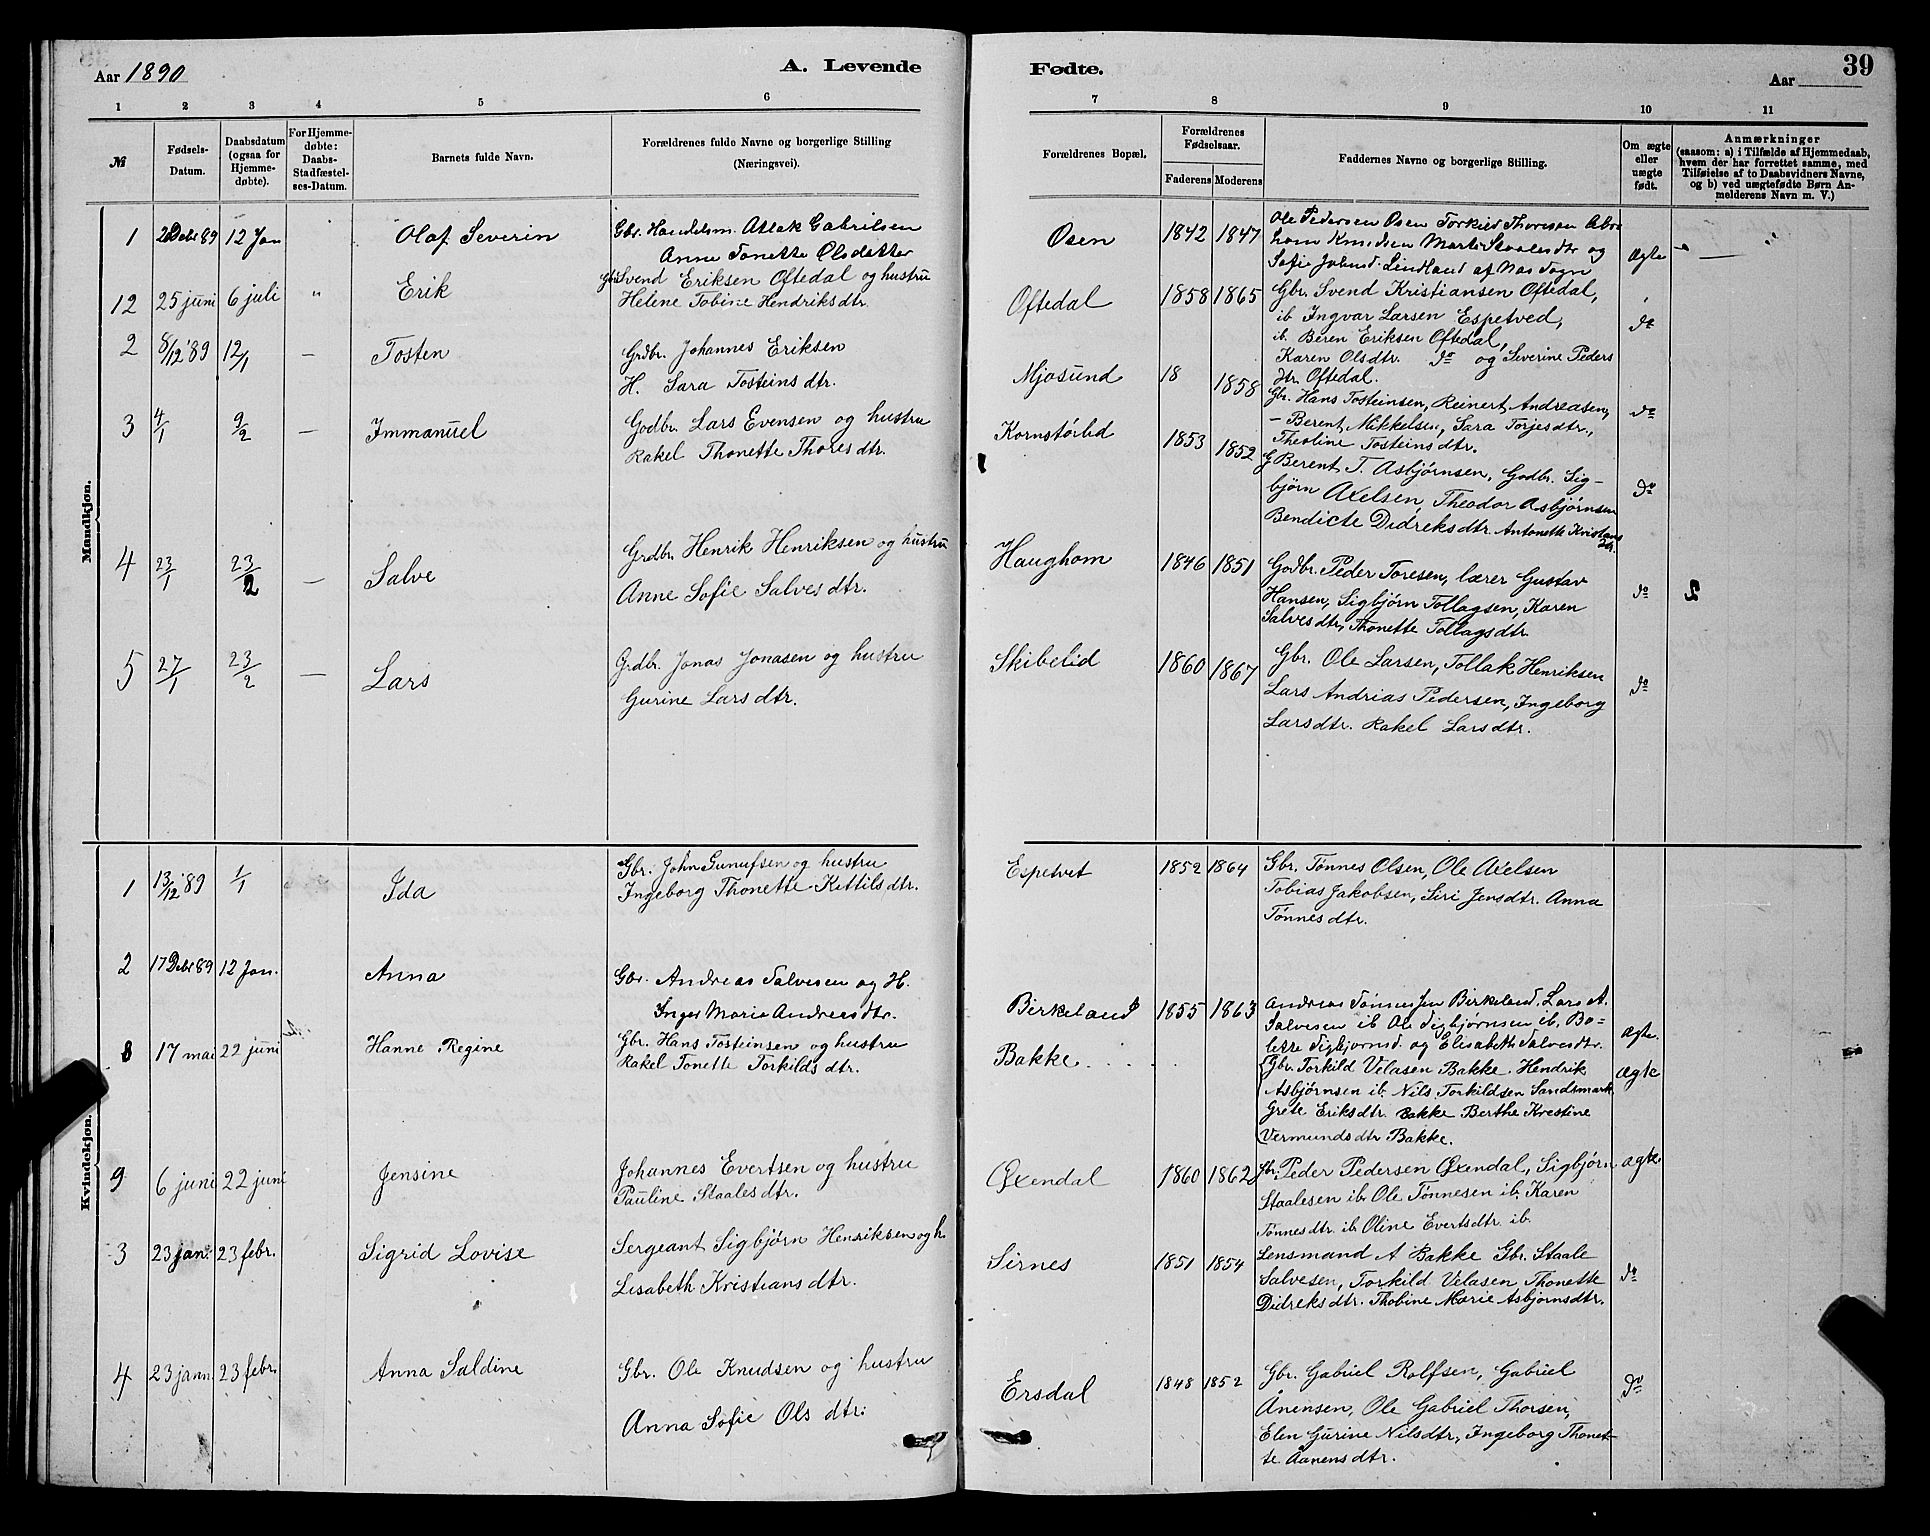 Aar 1890
A. Levende
Fødte.
Aar
39
1 2 3 4 5 6 7 8 9 10 11
№
Fødsels-
Datum.
Daabsdatum
(ogsaa for
Hjemme-
døbte).
For Hjemme-
døbte:
Daabs-
Stadfæstel-
ses-Datum.
Barnets fulde Navn.
Forældrenes fulde Navne og borgerlige Stilling
(Næringsvei).
Forældrenes Bopæl.
Forældrenes
Fødselsaar.
Faderens Moderens
Faddernes Navne og borgerlige Stilling.
Om ægte
eller
uægte
født.
Anmærkninger
(saasom: a) i Tilfælde af Hjemmedaab,
hvem der har forrettet samme, med
Tilføielse af to Daabsvidners Navne,
og b) ved uægtefødte Børn An-
melderens Navn m. V.)
Mandkjøn.
1 Debr 89 12 Jan Olaf Severin
Gbr. Handelsm. Atlak Gabrilsen
Anne Tonette Olsdatter
Osen 1842 1847
Ole Pedersen Osen Torkild Thoresen Abra
ham Knudsen Marte Staalesdtr og
Sofie Lindland af Næs Sogn
Ægte
12 25 juni 6 juli " Erik
Gbr Svend Eriksen Oftedal og hustru
Helene Tobine Hendriksdtr.
Oftedal 1858 1865
Gbr. Svend Kristiansen Oftedal,
ib Ingvar Larsen Espetved,
ib. Beren Eriksen Oftedal,
Karen Olsdtr. do og Severine Peders
dtr. Oftedal.
do
2 8/12 '89 12/1 — Tosten
Grdbr. Johannes Eriksen
H. Sara Tosteinsdtr.
Mjosund 18 1858
Gbr. Hans Tosteinsen, Reinert Andreasen,
— Berent Mikkelsen, Sara Torjesdtr.,
Theoline Tosteinsdtr.
do
3 4/1 9/2 — Immanuel
Godbr. Lars Evensen og hustru
Rakel Thonette Thoresdtr.
Kornstørlid 1853 1852
G Berent T. Asbjørnsen, Godbr. Sig-
bjørn Axelsen, Theodor Asbjørnsen
Bendicte Didreksdtr. Antonette Kristians
dtr.
do
4 23/1 23/2 — Salve
Grdbr. Henrik Henriksen og hustru
Anne Sofie Salvesdtr.
Haughom 1846 1851
Godbr. Peder Toresen, lærer Gustav
Hansen, Sigbjørn Tollagsen, Karen
Salvesdtr, Thonette Tollagsdtr.
do 2
5 27/1 23/2 — Lars
Grdbr. Jonas Jonasen og hustru
Gurine Larsdtr.
Skibelid 1860 1867
Gbr. Ole Larsen, Tollak Henriksen
Lars Andrias Pedersen, Ingeborg
Larsdtr. Rakel Larsdtr.
do
Kvindekjøn.
1 13/12 '89 1/1 Ida
Gbr. John Gunufsen og hustru
Ingeborg Thonette Kettilsdtr.
Espetvet 1852 1864
Gbr. Tønnes Olsen, Ole Axelsen
Tobias Jakobsen, Siri Jensdtr. Anna
Tönnesdtr.
2 17 Debr 89 12 Jan. Anna
Gbr. Andreas Salvesen og H.
Inger Marie Andreasdtr.
Birkeland 1855 1863
Andreas Tønnessen Birkeland. Lars A.
Salvesen ib Ole Sigbjørnsen ib. Bo-
lette Sigbjørnsd. og Elisabeth Salvesdtr.
Ægte.
8 17 mai 22 juni Hanne Regine
Gbr. Hans Tosteinsen og hustru
Rakel Tonette Torkildsdtr.
Bakke . . .
Gbr. Torkild Velasen Bakke. Hendrik
Asbjørnsen ib. Nils Torkildsen Sandsmark
Grete Eriksdtr. Bakke Berthe Kristine
Vermundsdtr Bakke.
Ægte
9 6 juni 22 juni Jensine
Johannes Evertsen og hustru
Pauline Staalesdtr.
Øxendal 1860 1862
Gbr. Peder Pedersen Øxendal, Sigbjørn
Staalesen ib. Ole Tønnesen ib. Karen
Tønnesdtr. ib. Oline Evertsdtr. ib.
Ægte.
3 23 jan. 23 febr. Sigrid Lovise
Sergeant Sigbjørn Henriksen og h.
Lisabeth Kristiansdtr.
Sirnes 1851 1854
Lensmand A Bakke Gbr. Staale
Salvesen, Torkild Velasen Thonette
Didreksdtr. Thobine Marie Asbjørnsdtr.
do
4 23 jann. 23 febr. Anna Saldine
Gbr. Ole Knudsen og hustru
Anna Sofie Olsdtr.
Ersdal 1848 1852
Gbr. Gabriel Rolfsen, Gabriel
Ånensen, Ole Gabriel Thorsen,
Elen Gurine Nilsdtr, Ingeborg Thonet-
te Aanensdtr.
do